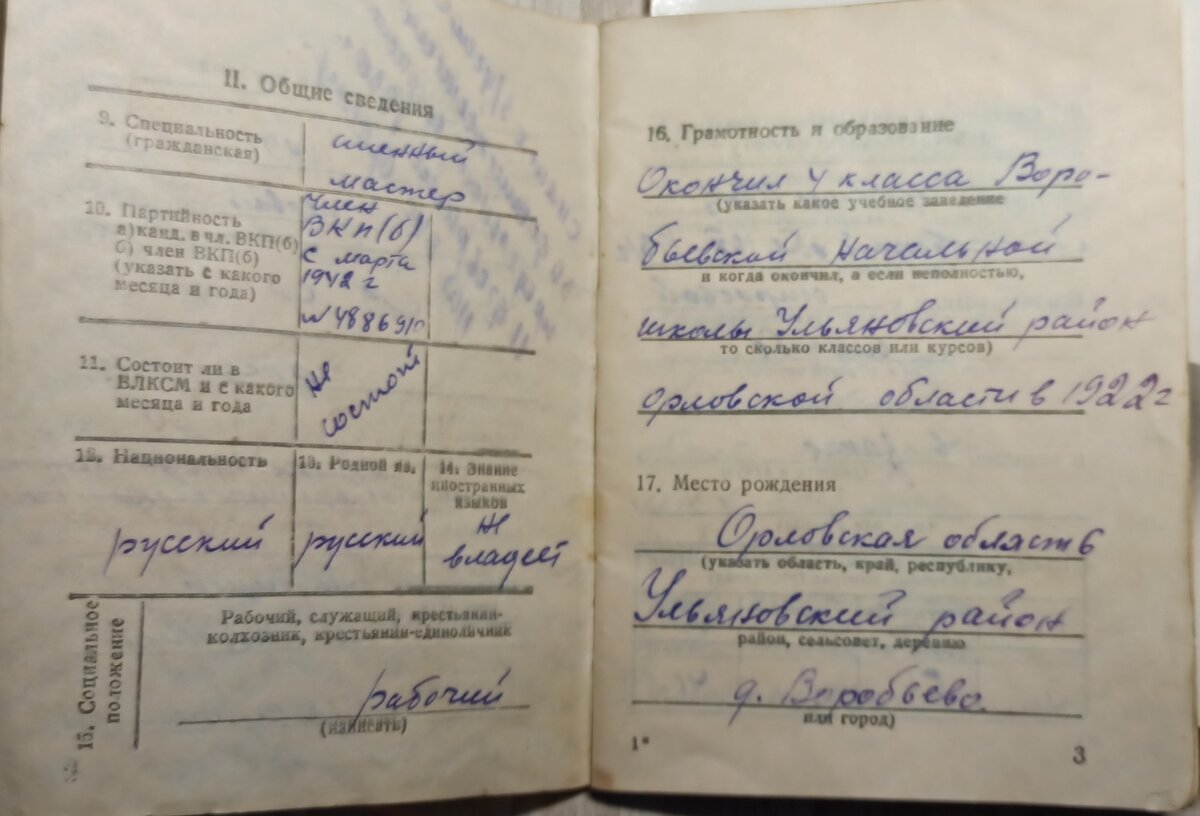 II. Общие сведения
9. Специальность
(гражданская)
сменный
мастер
10. Партийность
а) канд. в чл. ВКП(б)
б) член ВКП(б)
(указать с какого
месяца и года)
Член
ВКП(б)
с марта
1942 г
№ 4886910
11. Состоит ли в
ВЛКСМ и с какого
месяца и года
не
состоит
12. Национальность
русский
13. Родной яз.
русский
14. Знание
иностранных
языков
не
владеет
15. Социальное
положение
Рабочий, служащий, крестьянин-
колхозник, крестьянин-единоличник
рабочий
(написать)
16. Грамотность и образование
Окончил 4 класса Воро-
(указать какое учебное заведение
бьевской начальной
и когда окончил, а если неполностью,
школы Ульяновский район
то сколько классов или курсов)
орловской области в 1922 г
17. Место рождения
Орловская область
(указать область, край, республику,
Ульяновский район
район, сельсовет, деревню
д. Воробьево.
или город)
1*
3